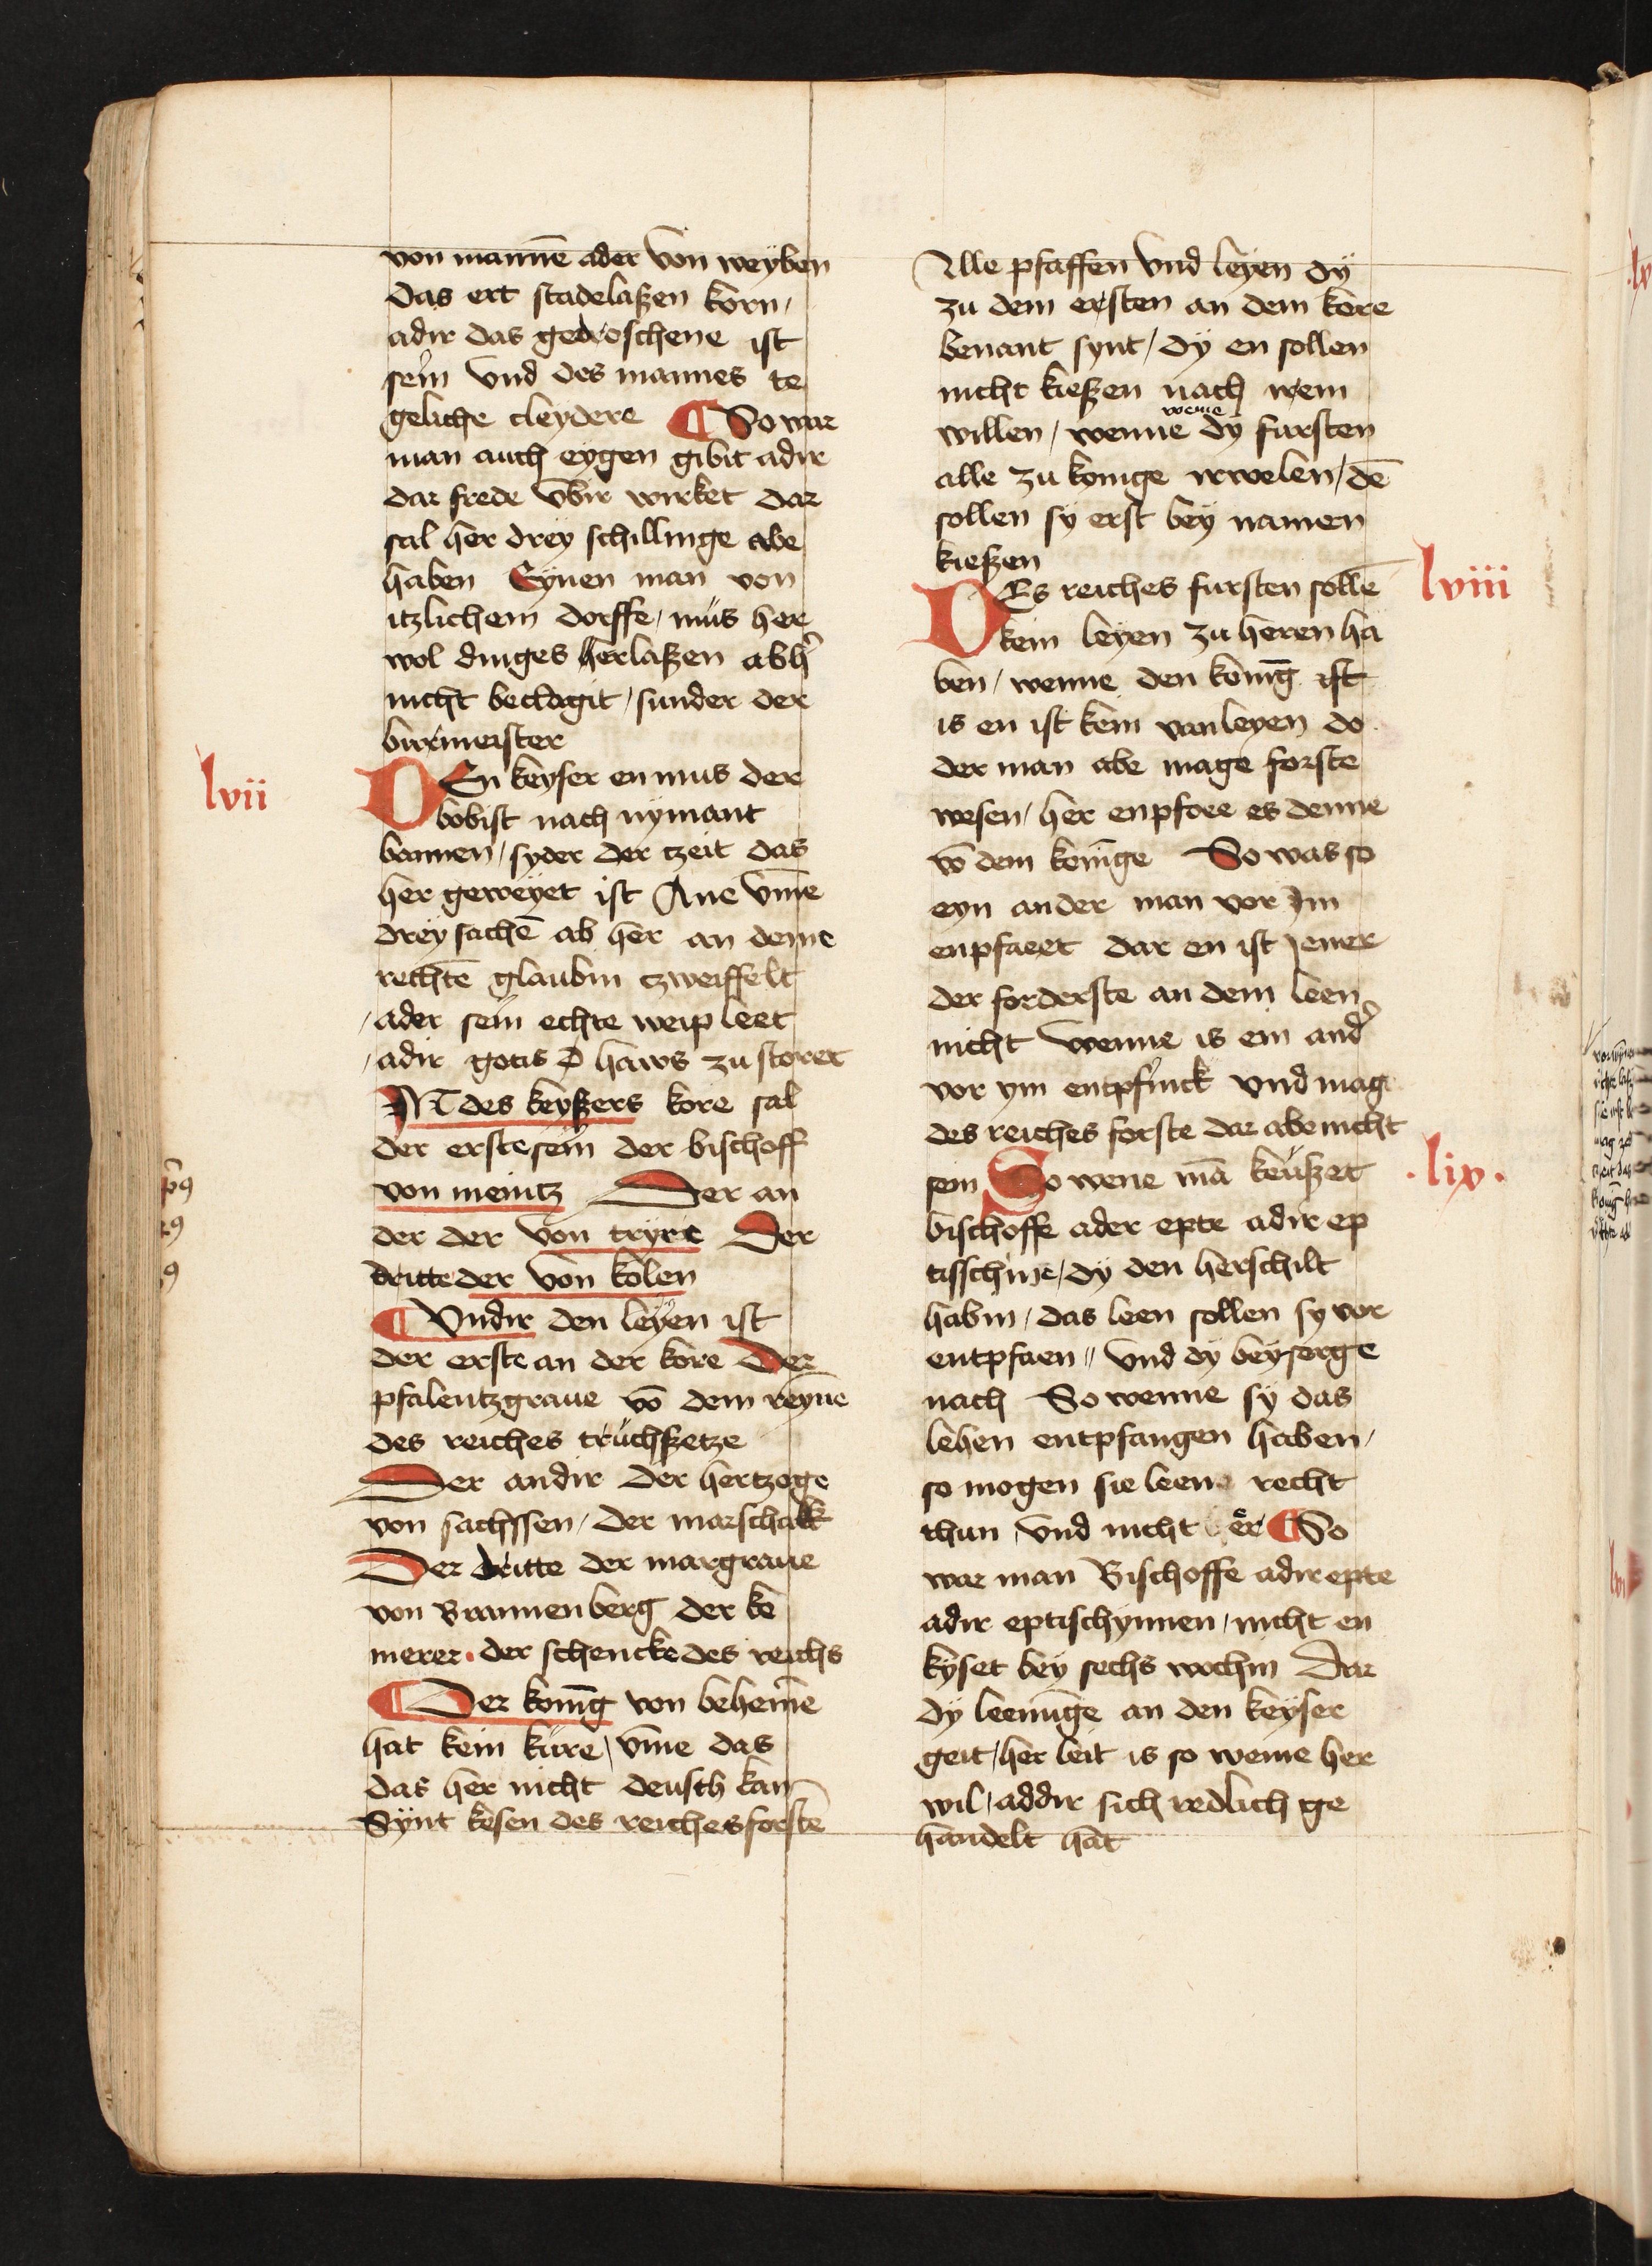 von mannē ader von weyben
das ert stadelaßen korn /
adir das gedroschene ist
sein vnd des mannes te
geliche cleydere ¶ So war
man auch eygen gibit adir
dar frede vbir wirket dar
sal her drey schillinge abe
haben Eynen man von
itzlichem dorffe / mus her
wol dinges herlaßen ab her
nicht beclagit / sunder der
burmeister
lvii
DEn keyser en mus der
bobist nach nymant
bannen / syder der tzeit das
her geweyet ist Ane vm̄e
drey sachē ab her an deme
rechtē glaubin tzweiffelt
/ ader sein echte weip leet
/ adir gotis haws zu storet
IN des keyßers kore sal
der erste sein der bischoff
von meintz Der an
der der von tryre Der
dritte der von kolen
¶ Vndir den leyen ist
der erste an der kore Der
pfalentzgraue vō dem reyne
des reiches truchßetze
Der andir der hertzoge
von sachssen / der marschalk
Der dritte der margraue
von Brannenberg der ke
merer · der schencke des reichs
¶ Der konīg von behem̄e
hat kein kure / vm̄e das
das her nicht deusch kan
Synt kesen des reiches forstē
Alle pfaffen vnd leyen dy
zu dem ersten an dem kore
benant synt / dy en sollen
nicht kießen nach wem
weme
willen / wenne dy fursten
alle zu konige irwelen / dē
sollen sy erst bey namen
kießen
lviii
DEs reiches fursten sollē
kein leyen zu heren ha
ben / wenne den kenīg ist
is en ist kein vanleyen do
der man abe mage forste
wesen / her enpfoee es denne
vō dem kenīge So was so
eyn ander man vor im
enpfaeet dar en ist jener
der forderste an dem leen
nicht wenne is ein and'
vor ym entpfinck vnd mag
des reiches forste dar abe nicht
·lix·
sein So wene mā keußet
bischoffe ader epte adir ep
tisschine / dy den herschilt
habin / das leen sollen sy vor
entpfaen // vnd dy beyserge
nach So wenne sy das
lehen entpfangen haben /
so mogen sie leen recht
thun vnd nicht er ¶ So
war man Bischoffe adir epte
adir eptischynnen / nicht en
kyset bey sechs wochin Dar
dy leenūge an den keyser
geit / her leit is so weme her
wil / addir sich redlich ge
handelt hat